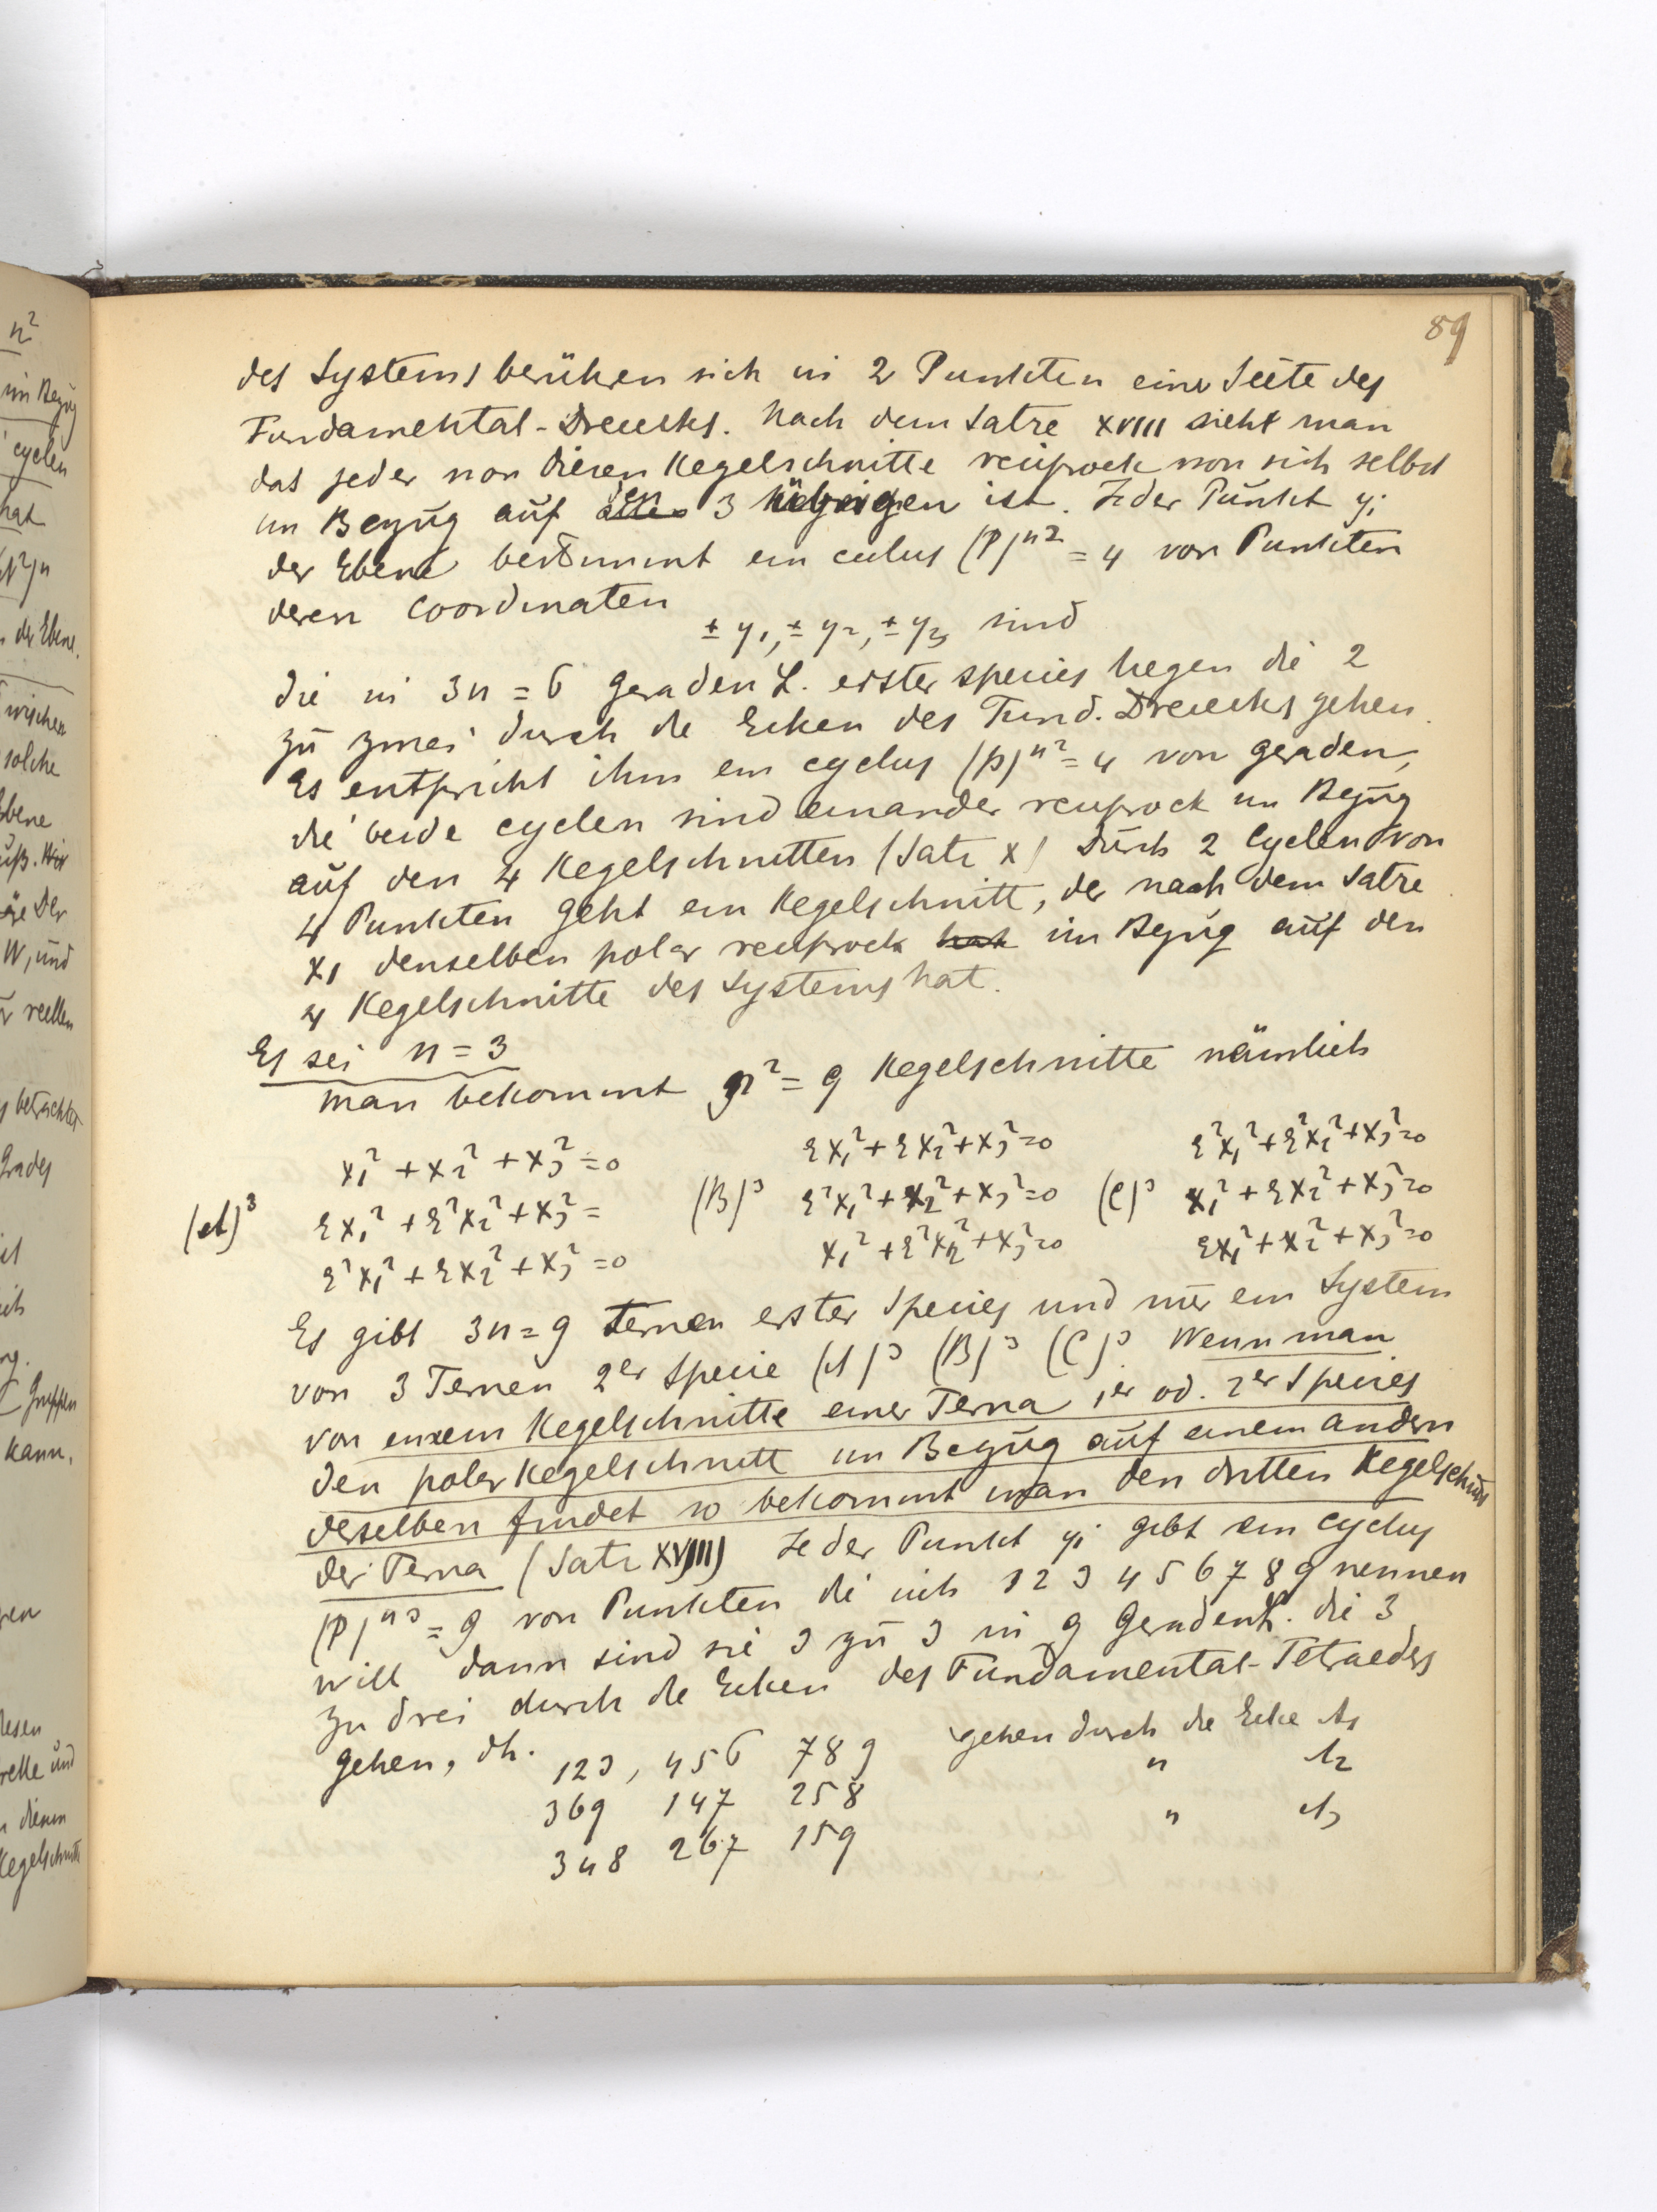 89
des Systems berühren sich in 2 Punkten einer Seite des
Fundamental-Dreiecks. Nach dem Satze XVIII sieht man
das jeder von diesen Kegelschnitte reciprock von sich selbst
im Bezug auf den 3 übrigen ist. Jeder Punkt yi
der Ebene bestimmt ein (P)^n2 = 4 von Punkten
deren Coordinaten
± y1, ± y2, ± y3 sind
die in 3n = 6 geraden L. erster species liegen die 2
zu zwei durch die Ecken des Fund. Dreiecks gehen.
Es entspricht ihm ein cyclus (p)^n2 = 4 von geraden,
die beide cyclen sind einander reciprock im Bezug
auf den 4 Kegelschnitten (Satz X) Durch 2 Cyclen von
4 Punkten geht ein Kegelschnitt, der nach dem Satze
XI denselben polar reciprock hat im Bezug auf den
4 Kegelschnitte des Systems hat.
Es sei n = 3
man bekommt n² = 9 Kegelschnitte nämlich
x₁² + x₂² + x₃² = 0 εx₁² + εx₂² + x₃² = 0 ε²x₁² + ε²x₂² + x₃² = 0
(A)³ εx₁² + ε²x₂² + x₃² = (B)³ ε²x₁² + x₂² + x₃² = 0 (C)³ x₁² + εx₂² + x₃² = 0
ε²x₁² + εx₂² + x₃² = 0 x₁² + ε²x₂² + x₃² = 0 εx₁² + x₂² + x₃² = 0
Es gibt 3n = 9 Ternen erster Species und nur ein System
von 3 Ternen 2er Specie (A)³ (B)³ (C)³. Wenn man
von einem Kegelschnitte einer Terna 1er od. 2er Species
den polar Kegelschnitt im Bezug auf einem andern
derselben findet so bekommt man den dritten Kegelschnitt
der Terna (Satz XVIII) Jeder Punkt yi gibt ein cyclus
(P)^n3 = 9 von Punkten die ich 1 2 3 4 5 6 7 8 9 nennen
will dann sind sie 3 zu 3 in 9 Geraden L. die 3
zu drei durch die Ecken des Fundamental-Tetraeders
gehen, dh. 123, 456 789 gehen durch die Ecke A1
369 147 258 " A2
348 267 159 " A3
n²
im Bezug
cyclen
hat
der Ebene.
solche
W, und
reellen
Grades
Gruppen
kann.
diesen
Kegelschnitte